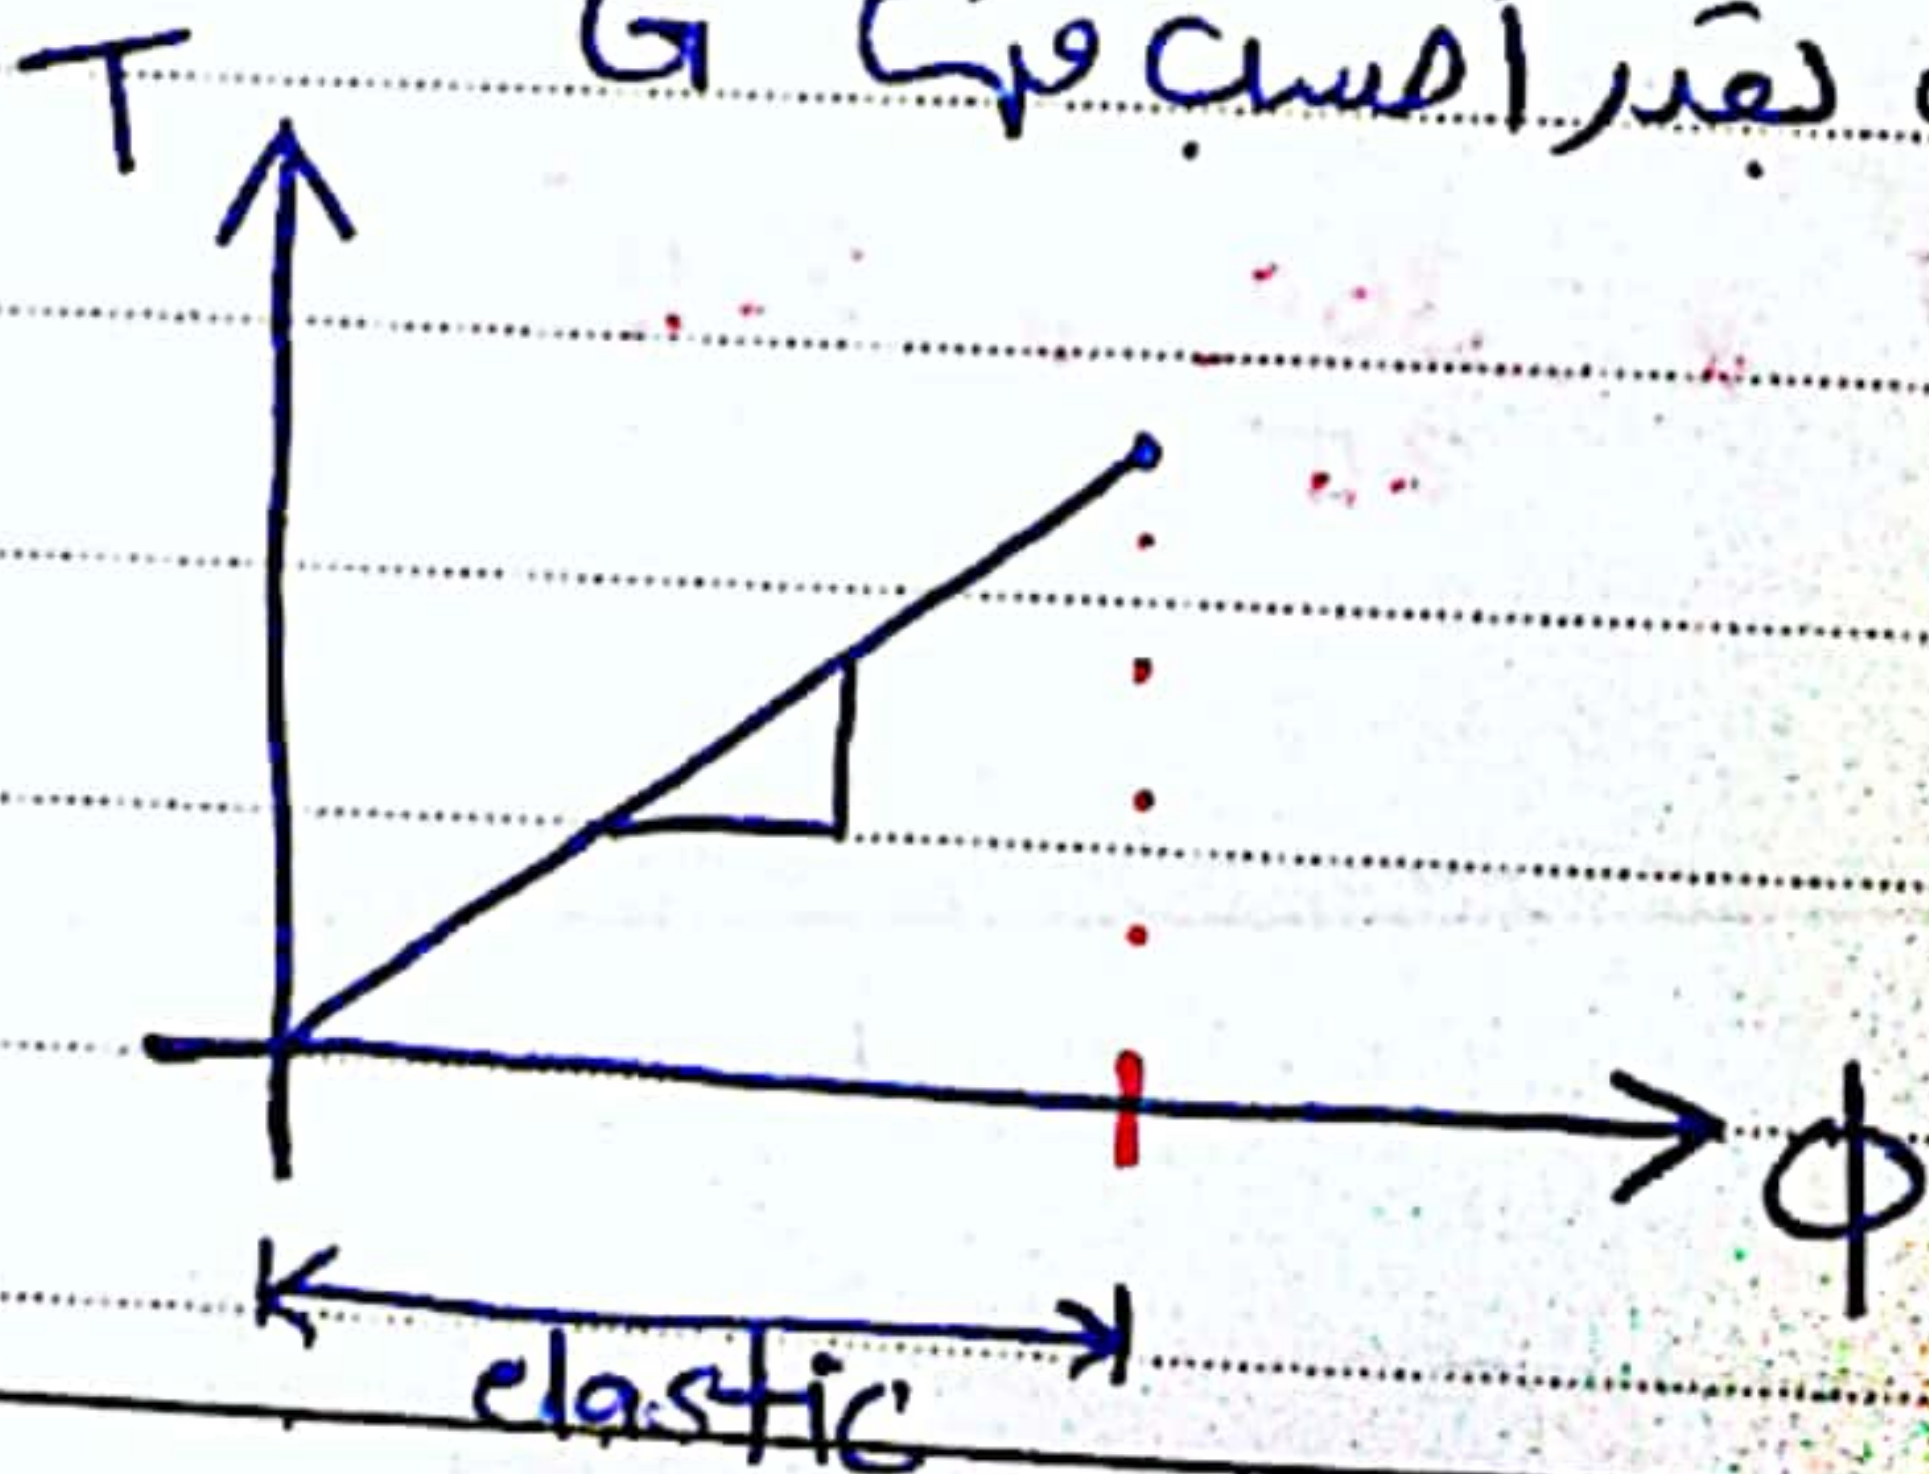 نقدر احسب قيمة G
T
ϕ
elastic